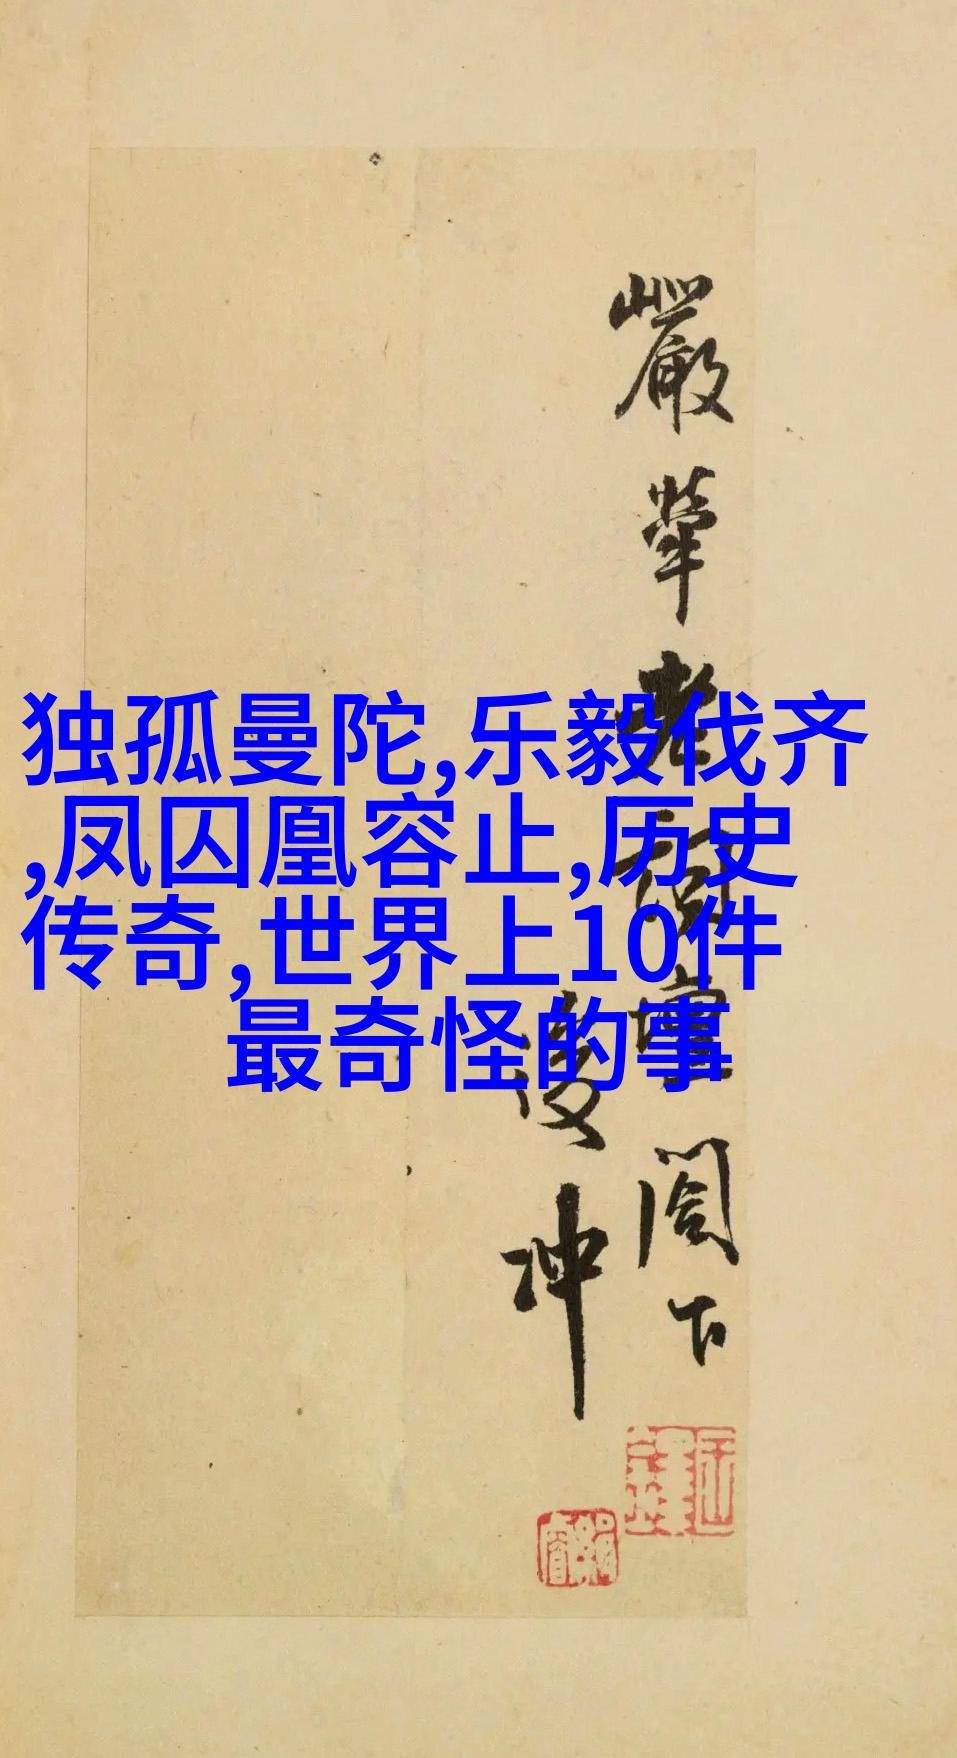 独孤曼陀,乐毅伐齐
,凤囚凰容止,历史
传奇,世界上10件
最奇怪的事
嚴犖老詞壇閣下
浚冲